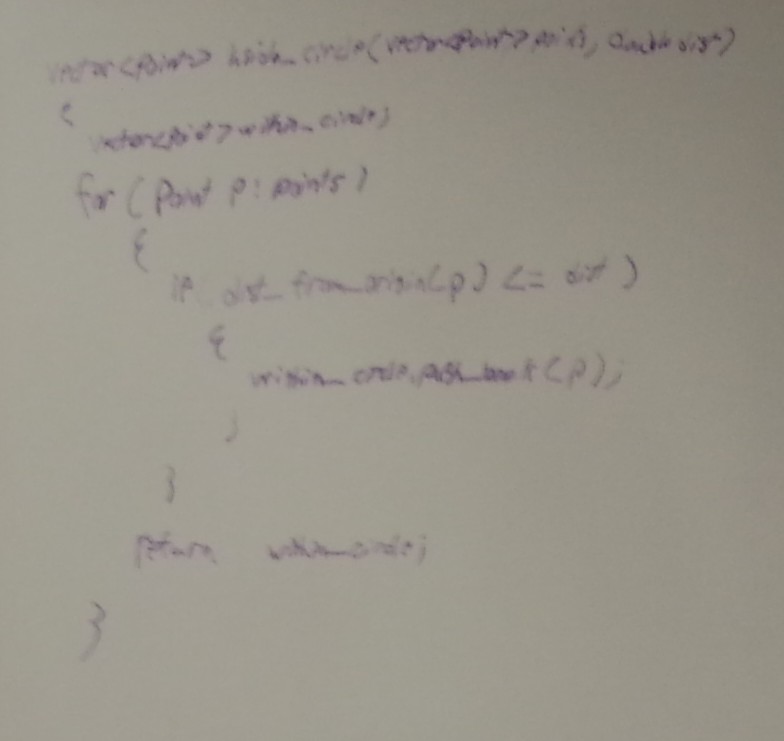 vector<Point> within_circle(vector<Point> points, double dist)
{
vector<Point> within_circle;
for (Point p: points)
{
if( dist_from_origin(p) <= dist )
{
within_circle.push_back(p);
}
}
return within_circle;
}